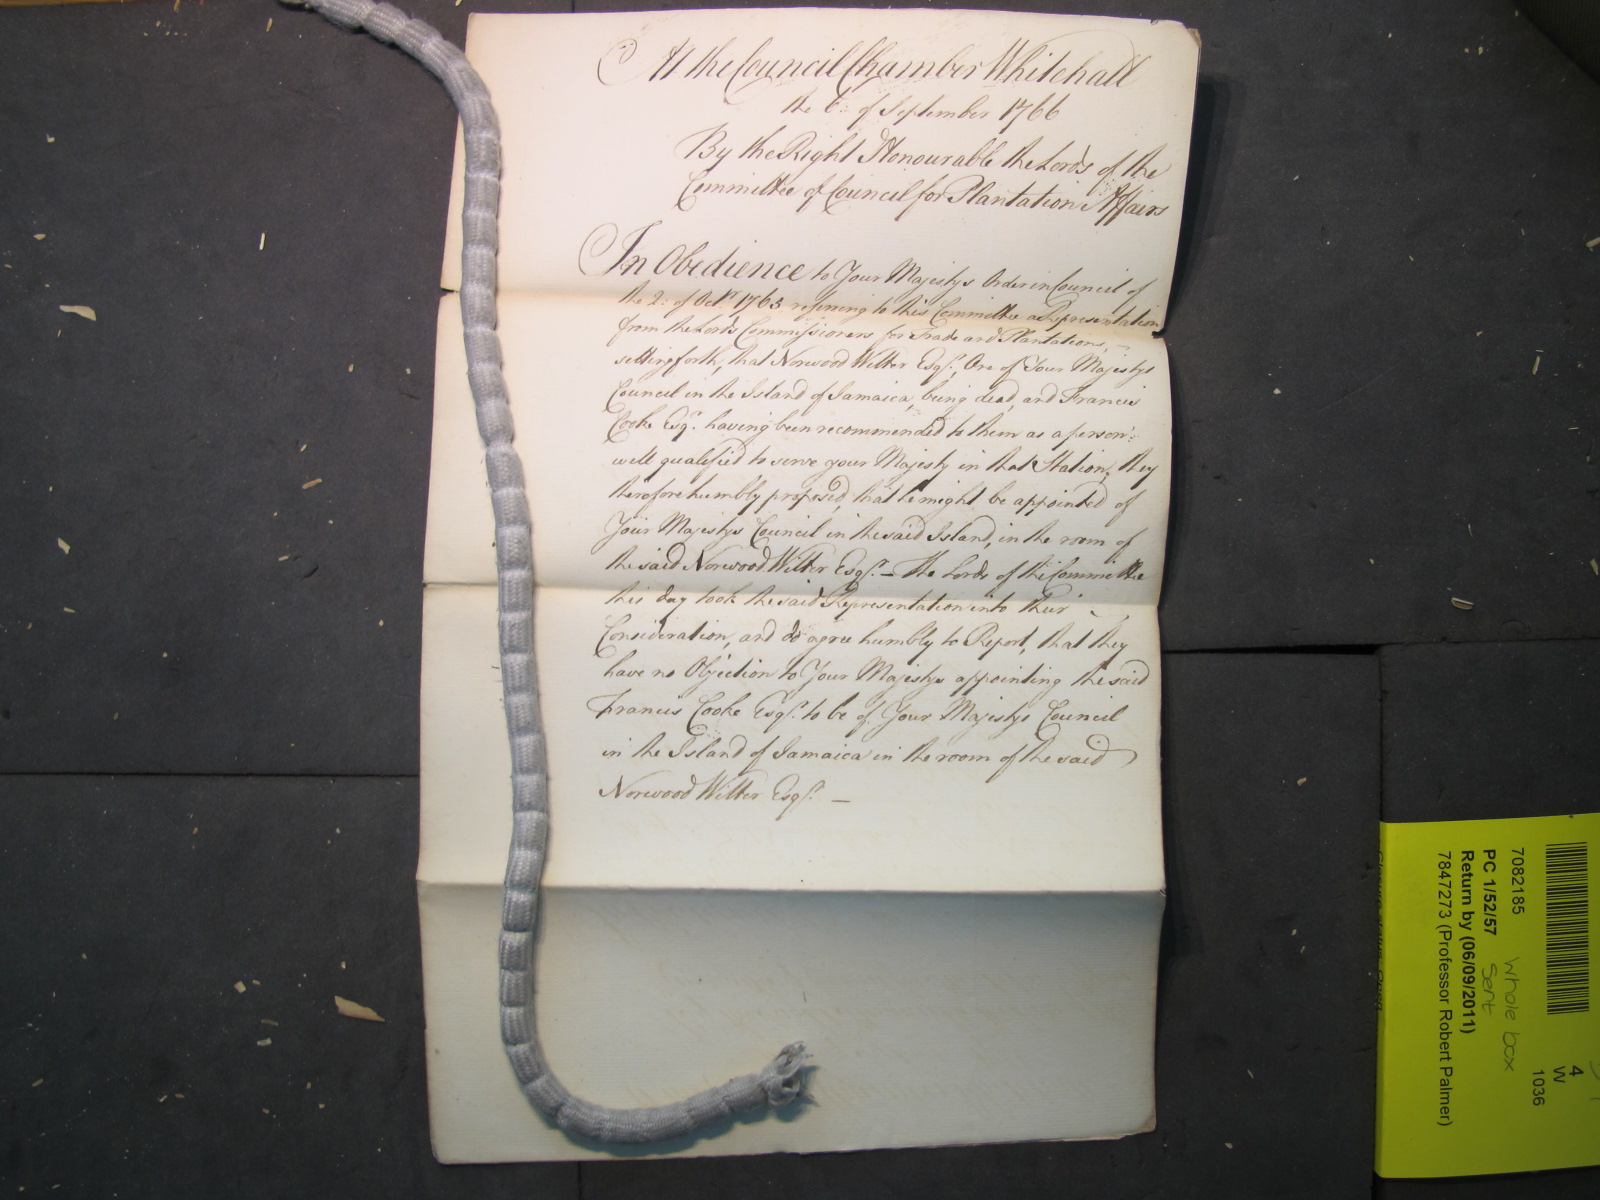 At the Council Chamber Whitehall
the 6: of September 1766
By the Right Honourable the Lords of the
Committee of Council for Plantation Affairs
In Obedience to Your Majestys Order in Council of
the 2: of Octr. 1765 referring to this Committee a Representation
from the Lords Commissioners for Trade and Plantations,
setting forth, that Norwood Witter Esqr., One of Your Majestys
Council in the Island of Jamaica, being dead, and Francis
Cooke Esqr. having been recommended to them as a person
well qualified to serve your Majesty in that Station, they
therefore humbly proposed, that he might be appointed of
Your Majestys Council in the said Island, in the room of
the said Norwood Witter Esqr. — The Lords of the Committee
this day took the said Representation into their
Consideration, and do agree humbly to Report, that they
have no Objection to Your Majestys appointing the said
Francis Cooke Esqr. to be of Your Majestys Council
in the Island of Jamaica in the room of the said
Norwood Witter Esqr. —
7082185
PC 1/52/57
Return by (06/09/2011)
7847273 (Professor Robert Palmer)
whole box
sent
4
W
1036